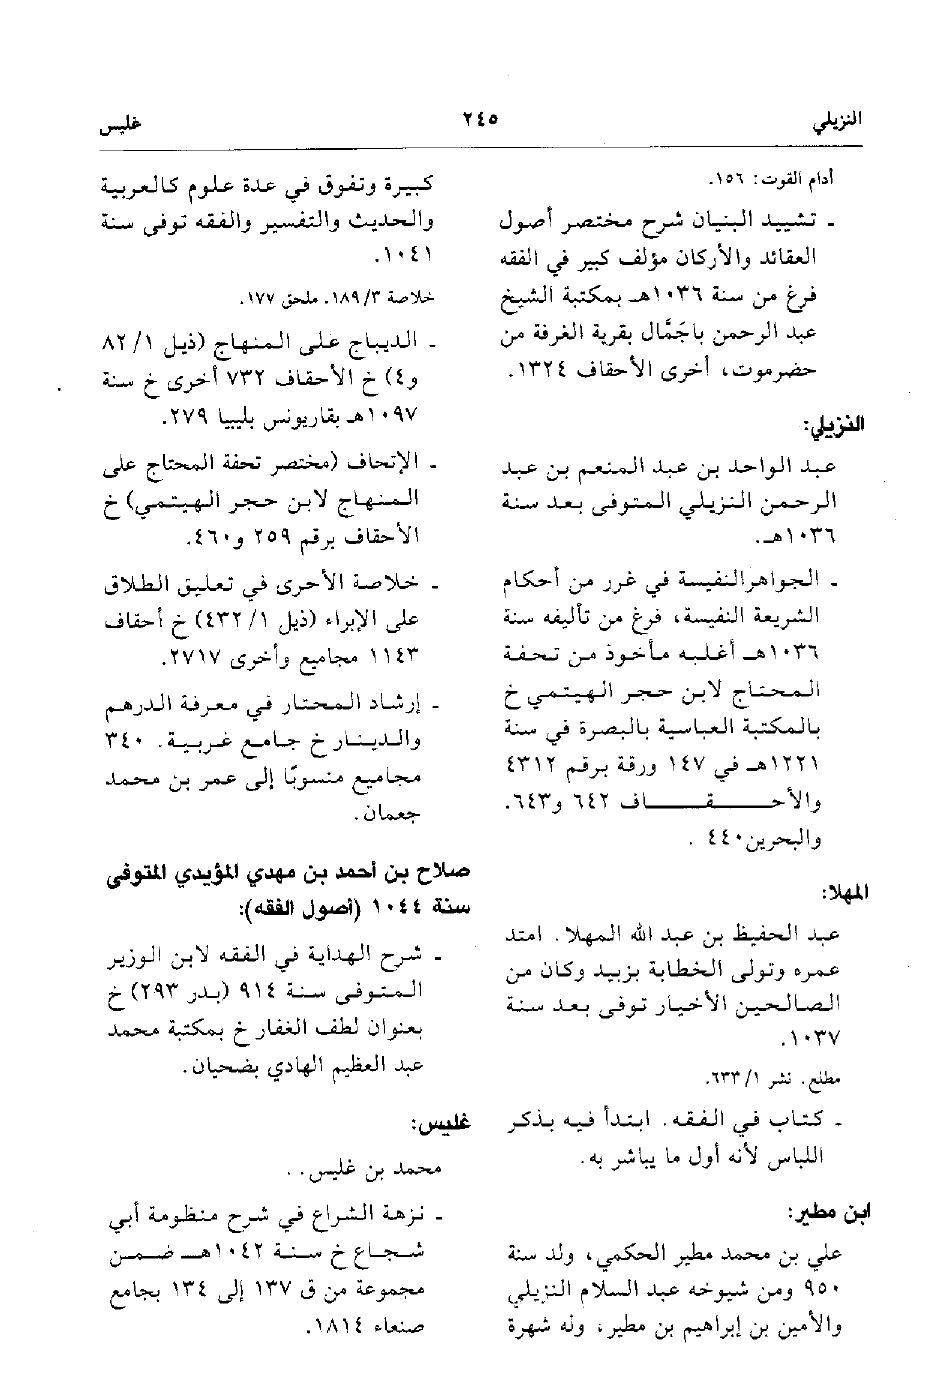 النزيلي
٢٤٥
غليس
أدام القوت: ١٥٦.
ـ تشييد البنيان شرح مختصر أصول
العقائد والأركان مؤلف كبير في الفقه
فرغ من سنة ١٠٣٦هـ بمكتبة الشيخ
عبد الرحمن باجَمَّال بقرية الغرفة من
حضرموت، أخرى الأحقاف ١٣٢٤.
النزيلي:
عبد الواحد بن عبد المنعم بن عبد
الرحمن النزيلي المتوفى بعد سنة
١٠٣٦هـ.
ـ الجواهر النفيسة في غرر من أحكام
الشريعة النفيسة، فرغ من تأليفه سنة
١٠٣٦هـ أغلبه مأخوذ من تحفة
المحتاج لابن حجر الهيتمي خ
بالمكتبة العباسية بالبصرة في سنة
١٢٢١هـ في ١٤٧ ورقة برقم ٤٣١٢
والأحـقـاف ٦٤٢ و٦٤٣.
والبحرين ٤٤٠ .
المهلا:
عبد الحفيظ بن عبد الله المهلا. امتد
عمره وتولى الخطابة بزبيد وكان من
الصالحين الأخيار توفى بعد سنة
١٠٣٧.
مطلع. نشر ٦٣٣/١.
ـ كتاب في الفقه. ابتدأ فيه بذكر
اللباس لأنه أول ما يباشر به.
ابن مطير:
علي بن محمد مطير الحكمي، ولد سنة
٩٥٠ ومن شيوخه عبد السلام النزيلي
والأمين بن إبراهيم بن مطير، وله شهرة
كبيرة وتفوق في عدة علوم كالعربية
والحديث والتفسير والفقه توفى سنة
١٠٤١.
خلاصة ١٨٩/٣. ملحق ١٧٧.
ـ الديباج على المنهاج (ذيل ٨٢/١
و٤) خ الأحقاف ٧٣٢ أخرى خ سنة
١٠٩٧هـ بقاريونس بليبيا ٢٧٩.
ـ الإتحاف (مختصر تحفة المحتاج على
المنهاج لابن حجر الهيتمي) خ
الأحقاف برقم ٢٥٩ و٤٦٠.
ـ خلاصة الأحرى في تعليق الطلاق
على الإبراء (ذيل ٤٣٢/١) خ أحقاف
١١٤٣ مجاميع وأخرى ٢٧١٧.
ـ إرشاد المحتار في معرفة الدرهم
والدينار خ جامع غربية. ٣٤٠
مجاميع منسوبًا إلى عمر بن محمد
جعمان.
صلاح بن أحمد بن مهدي المؤيدي المتوفى
سنة ١٠٤٤ (أصول الفقه):
ـ شرح الهداية في الفقه لابن الوزير
المتوفى سنة ٩١٤ (بدر ٢٩٣) خ
بعنوان لطف الغفار خ بمكتبة محمد
عبد العظيم الهادي بضحيان.
غليس:
محمد بن غليس. .
ـ نزهة الشراع في شرح منظومة أبي
شجاع خ سنة ١٠٤٢هـ ضمن
مجموعة من ق ١٣٧ إلى ١٣٤ بجامع
صنعاء ١٨١٤.